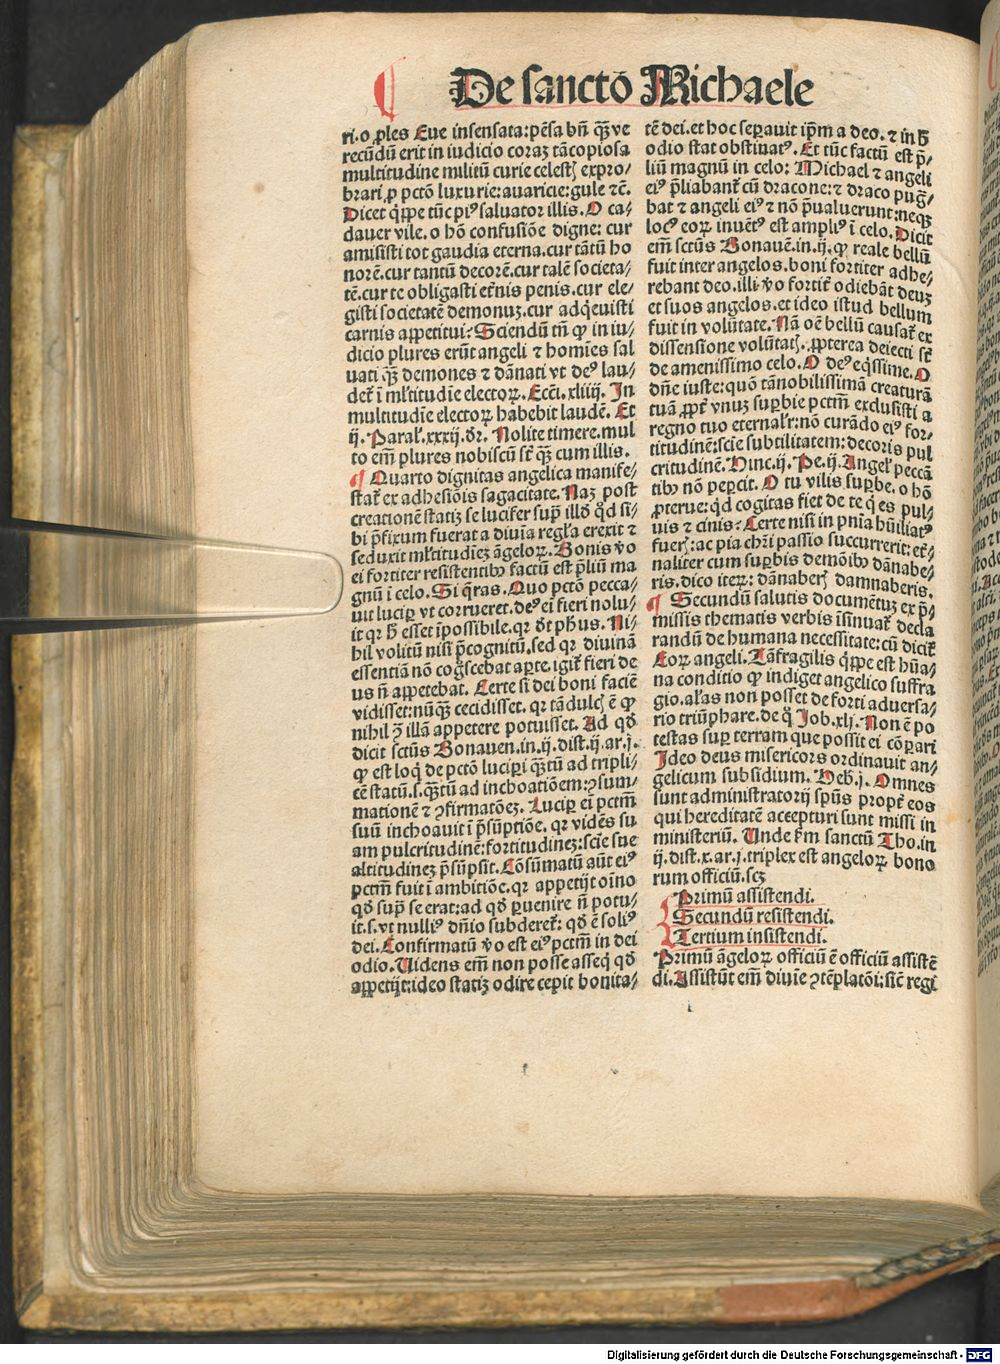 De sancto Michaele
ri. o ꝓles Eue insensata: pēsa bn̄ qͣꝫ ve
recūdū erit in iudicio coraꝫ tā copiosa
multitudine militū curie celestꝭ expro⸗
brari ꝓ pctō luxurie: auaricie: gule ⁊c̄.
Dicet qͥppe tūc piꝰ saluator illis. O ca⸗
dauer vile. o hō confusiōe digne: cur
amisisti tot gaudia eterna. cur tātū ho
norē. cur tantū decorē. cur talē societa⸗
tē. cur te obligasti et̄nis penis. cur ele⸗
gisti societatē demonuꝫ. cur adqͥeuisti
carnis appetitui: Sciendū tn̄ ꝙ in iu⸗
dicio plures erūt angeli ⁊ homīes sal
uati qͣꝫ demones ⁊ dānati vt deꝰ lau⸗
det̄ ī ml̄titudīe electoꝝ. Eccī. xliiij. In
multitudīe electoꝝ habebit laudē. Et
ij. Paral̄. xxxij. dr̄. Nolite timere. mul
to em̄ plures nobiscū st̄ qͣꝫ cum illis.
¶ Quarto dignitas angelica manife⸗
stat̄ ex adhesiōis sagacitate. Naꝫ post
creationē statiꝫ se lucifer sup̄ illđ qđ si⸗
bi p̄fixum fuerat a diuīa regl̄a erexit ⁊
seduxit ml̄titudīeꝫ āgeloꝝ. Bonis v̄o
ei fortiter resistentibꝰ factū est p̄liū ma
gnū ī celo. Si qͥras. Quo pctō pecca⸗
uit lucip̄ vt corrueret. deꝰ ei fieri nolu⸗
it qꝛ h̄ esset īpossibile. qꝛ dt̄ ph̄us. Ni⸗
hil volitū nisi p̄cognitū. sed qꝛ diuinā
essentiā nō cogͦscebat aperte. igit̄ fieri de
us n̄ appetebat. Certe si dei boni faciē
vidisset: nūqͣꝫ cecidisset. qꝛ tā dulcꝭ ē ꝙ
nihil ꝯ illā appetere potuisset. Ad qđ
dicit sctūs Bonauen. in. ij. dist. ij. ar. j.
ꝙ est loqͥ de pctō lucip̄i qͣꝫtū ad tripli⸗
cē statū. s. qͣꝫtū ad inchoatiōem: ꝯsum⸗
mationē ⁊ ꝯfirmatōeꝫ. Lucip̄ ei̅ pctm̄
suū inchoauit ī p̄sūptiōe. qꝛ vidēs su
am pulcritudinē: fortitudineꝫ: scīe sue
altitudineꝫ p̄sūpsit. Cōsūmatū aūt eiꝰ
pctm̄ fuit ī ambitiōe. qꝛ appetijt oīno
qđ sup̄ se erat: ad qđ ꝑuenire n̄ potu⸗
it. s. vt nulliꝰ dn̄io subderet̄: qđ ē soliꝰ
dei. Confirmatū v̄o est eiꝰ pctm̄ in dei
odio. Uidens em̄ non posse asseqͥ qđ
appetijt: ideo statiꝫ odire cepit bonita⸗
tē dei. et hoc sep̱auit ip̄m a deo. ⁊ in h̄
odio stat obstinatꝰ. Et tūc factū est p̄⸗
liū magnū in celo: Michael ⁊ angeli
eiꝰ p̄liabant̄ cū dracone: ⁊ draco pug̃⸗
bat ⁊ angeli eiꝰ ⁊ nō p̄ualuerunt: neqꝫ
locꝰ eoꝝ inuētꝰ est ampliꝰ ī celo. Dicit
em̄ sctūs Bonauē. in. ij. ꝙ reale bellū
fuit inter angelos. boni fortiter adhe⸗
rebant deo. illi v̄o fortit̄ odiebāt deuꝫ
et suos angelos. et ideo istud bellum
fuit in volūtate. Nā oē bellū causat̄ ex
dissensione volūtatꝭ. ꝓpterea deiecti st̄
de amenissimo celo. O deꝰ eqͥssime. O
dn̄e iuste: quō tā nobilissimā creaturā
tuā ꝓpt̄ vnuꝫ sup̱bie pctm̄ exclusisti a
regno tuo eternal̄r: nō curādo eiꝰ for⸗
titudinē: scīe subtilitatem: decoris pul
critudinē. Hinc. ij. Pe. ij. Angel̄ peccā
tibꝰ nō pep̱cit. O tu vilis sup̱be. o hō
ꝓterue: qͥd cogitas fiet de te qͥ es pul⸗
uis ⁊ cinis: Certe nisi in pn̄ia hūiliatꝰ
fuerꝭ: ac pia chr̄i passio succurrerit: et̄⸗
naliter cum sup̱bis demōibꝰ dānabe⸗
ris. dico iteꝝ: dānaberꝭ damnaberis.
¶ Secundū salutis documētuꝫ ex p̄⸗
missis thematis verbis īsinuat̄ decla
randū de humana necessitate: cū dicit̄
Eoꝝ angeli. Tā fragilis qͥppe est hūa⸗
na conditio ꝙ indiget angelico suffra
gio. al̄as non posset de forti aduersa⸗
rio triūphare. de qͦ Job. xlj. Non ē po
testas sup̱ terram que possit ei cōp̱ari
Ideo deus misericors ordinauit an⸗
gelicum subsidium. Heb̄. j. Omnes
sunt administratorij spūs propt̄ eos
qui hereditatē accepturi sunt missi in
ministeriū. Unde km̄ sanctū Tho. in
ij. dist. x. ar. j. triplex est angeloꝝ bono
rum officiū. scꝫ
Primū assistendi.
Secundū resistendi.
Tertium insistendi.
Primū āgeloꝝ officiū ē officiū assistē
di. Assistūt em̄ diuīe ꝯtēplatōi: sic̄ regi
Digitalisierung gefördert durch die Deutsche Forschungsgemeinschaft - DFG